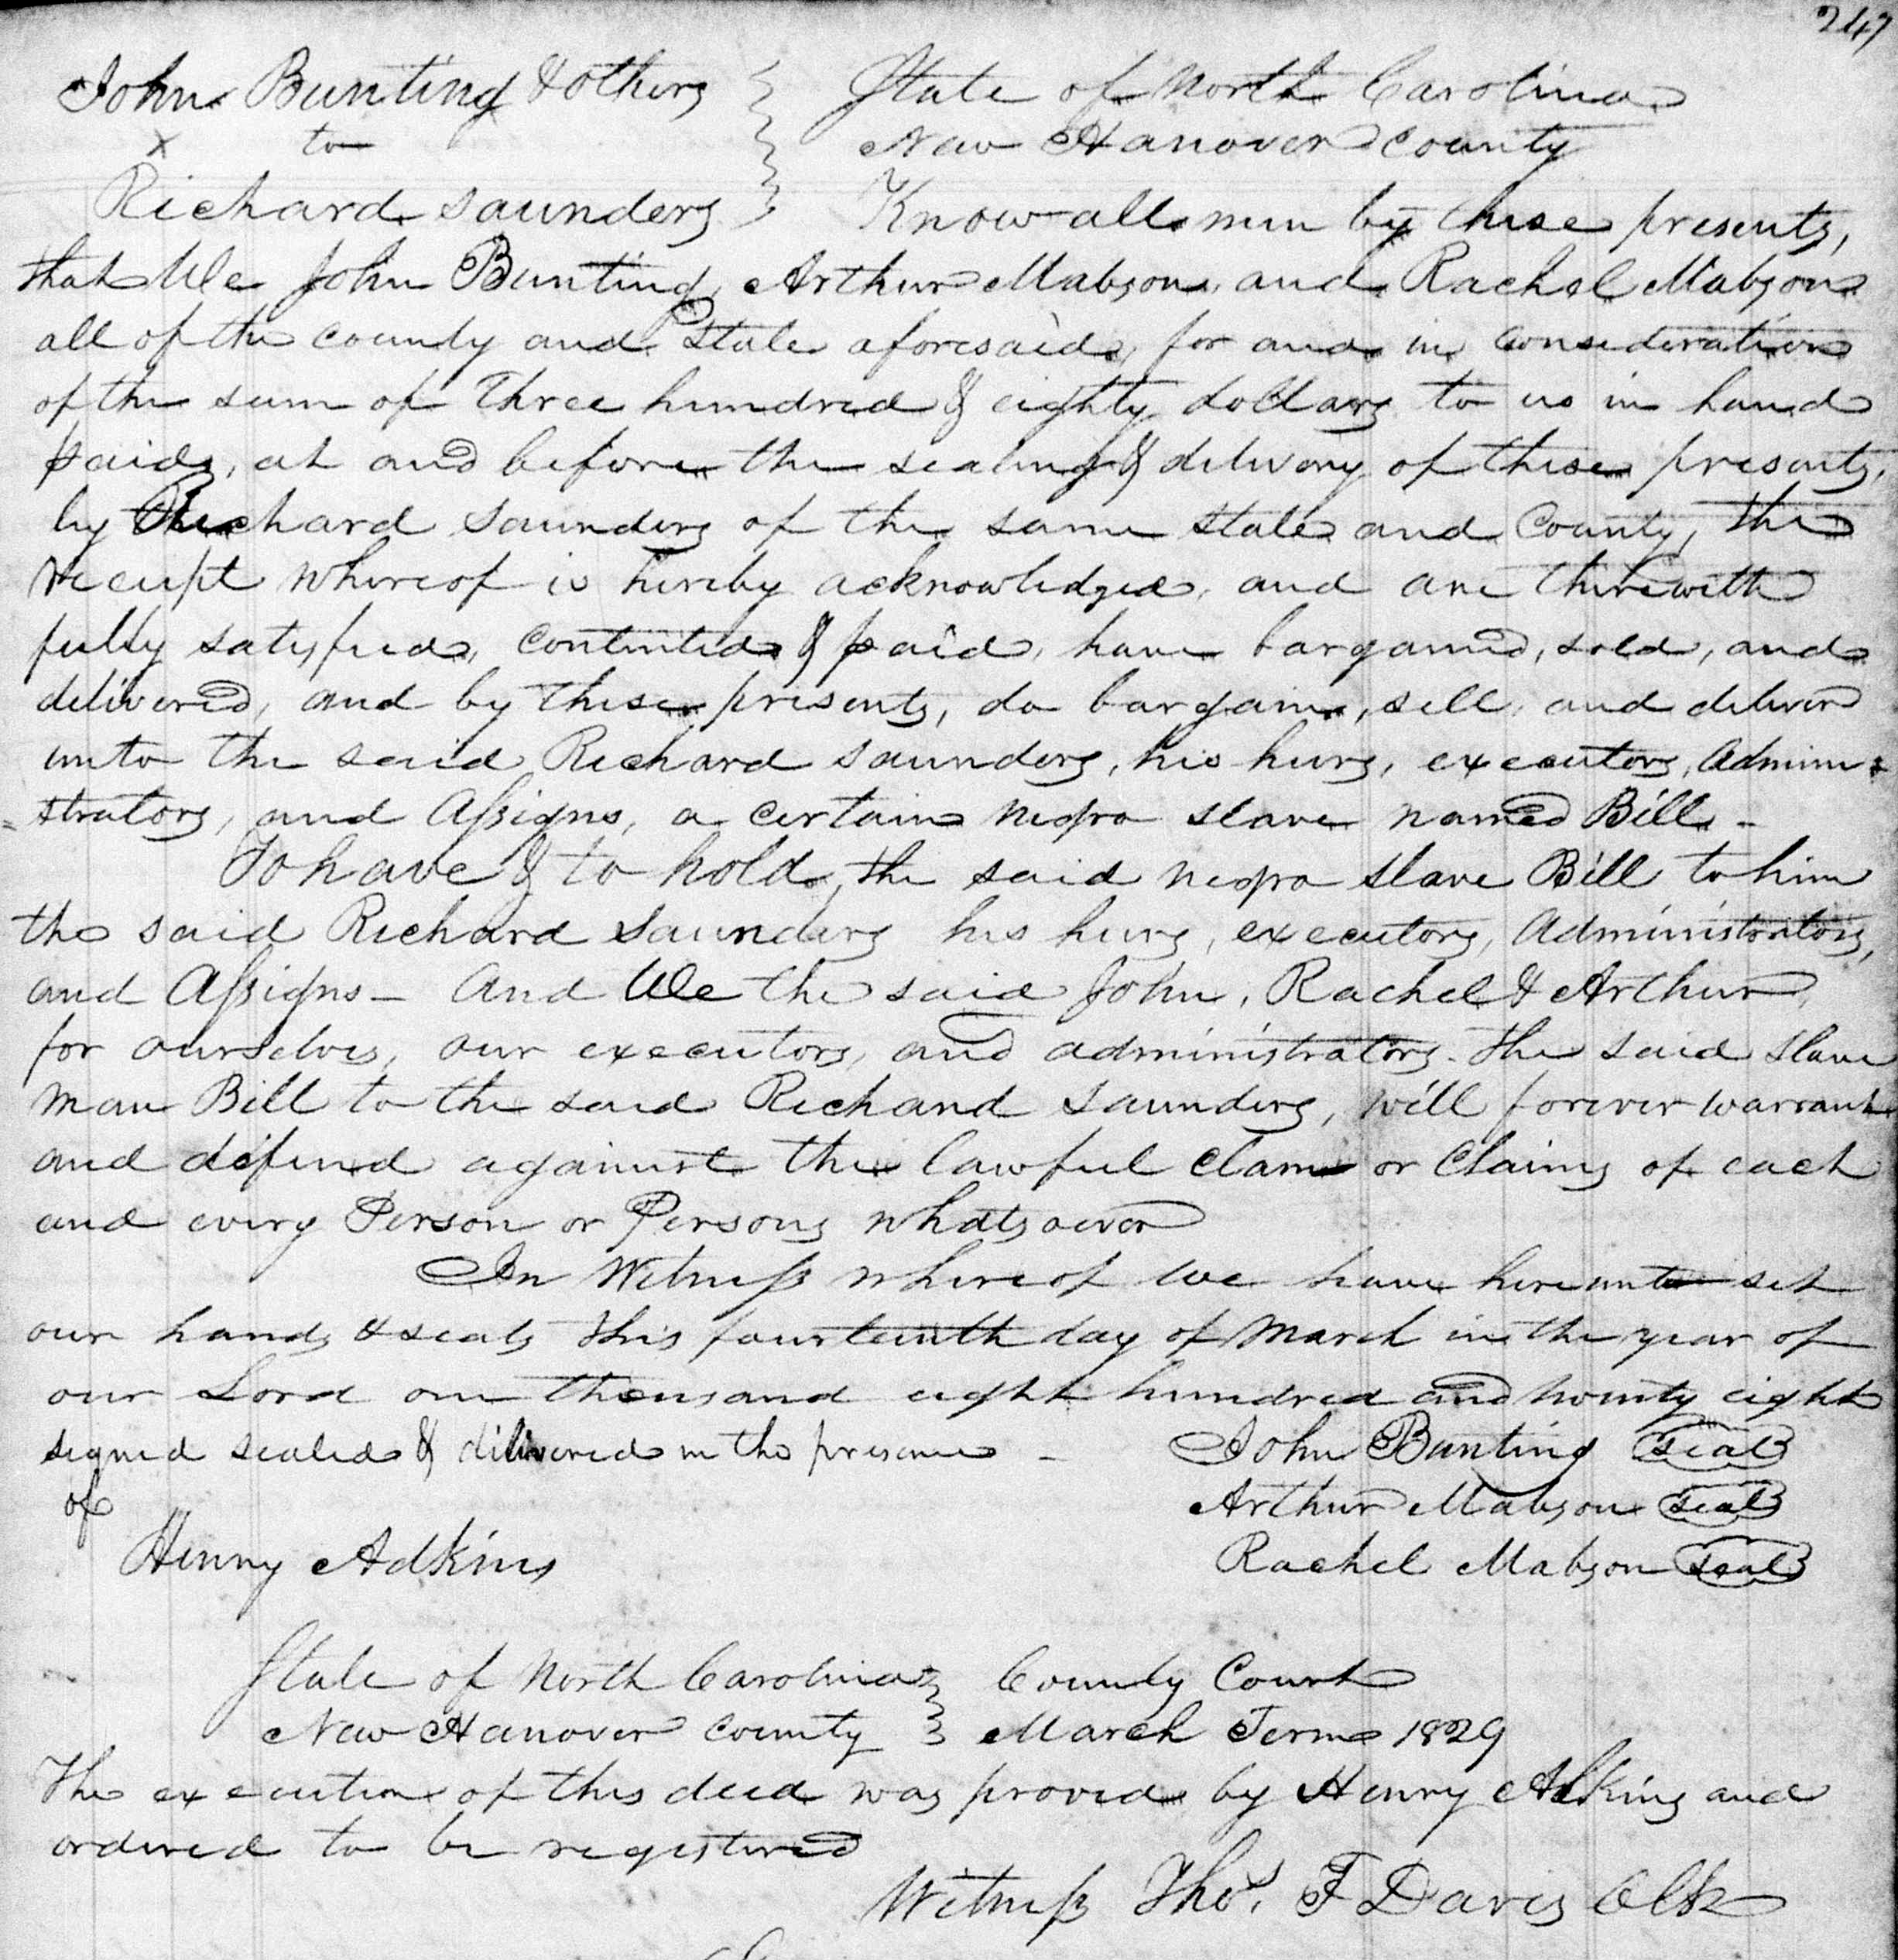 247
John Bunting & others } State of North Carolina
x to } New Hanover County
Richard Saunders } Know all men by these presents,
that We John Bunting, Arthur Mabson, and Rachel Mabson
all of the county and State aforesaid, for and in consideration
of the sum of three hundred & eighty dollars to us in hand
paid, at and before the sealing & delivery of these presents,
by Richard Saunders of the same State and County, the
receipt whereof is hereby acknowledged, and are therewith
fully satisfied, contented & paid, have bargained, sold, and
delivered, and by these presents, do bargain, sell, and deliver
unto the said Richard Saunders, his heirs, executors, Admini=
=strators, and Assigns, a certain negro slave named Bill -
To have & to hold, the said negro slave Bill to him
the said Richard Saunders his heirs, executors, Administrators,
and Assigns - And We the said John, Rachel & Arthur,
for ourselves, our executors, and administrators. the said slave
man Bill to the said Richard Saunders, will forever warrant
and defend against the lawful clam or claims of each
and every Person or Persons whatsoever
In Witness whereof we have hereunto set
our hands & seals this fourteenth day of March in the year of
our Lord one thousand eight hundred and twenty eight
signed sealed & delivered in the presence - John Bunting seal
of Arthur Mabson seal
Henry Adkins Rachel Mabson seal
State of North Carolina } County Court
New Hanover County } March Term 1829
The execution of this deed was proved by Henry Adkins and
ordered to be registered
Witness Thos. F Davis Clk